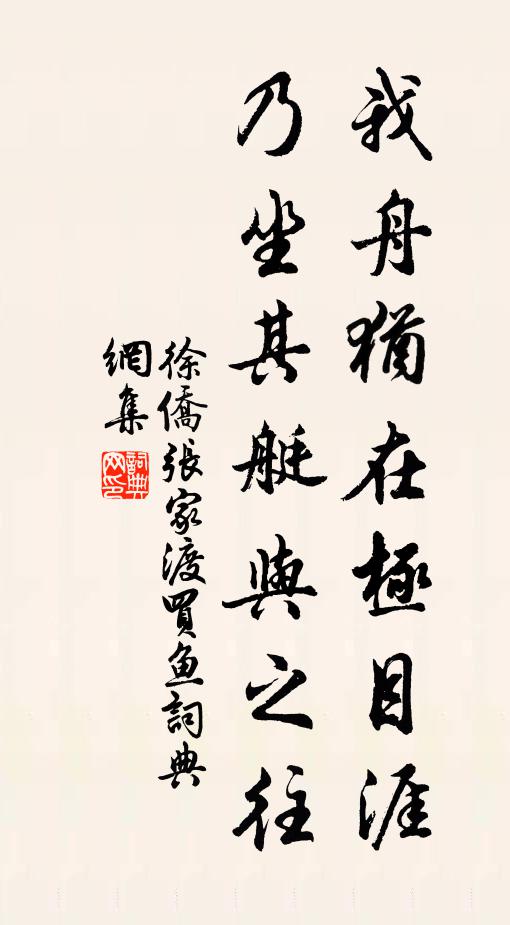 我舟猶在極目涯
乃坐其艇與之往
徐僑張家渡買魚詞典
網集
詞典
网印